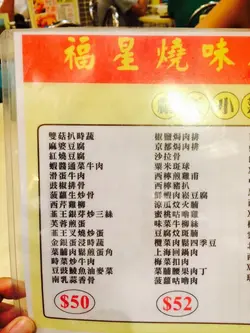 福星燒味
小
雙菇扒時蔬
麻婆豆腐
紅燒豆腐
蝦醬通菜牛肉
滑蛋牛肉
豉椒排骨
菠蘿生炒骨
西芹雞柳
韮王銀芽炒三絲
芙蓉煎蛋
韮王叉燒炒蛋
金銀蛋浸時蔬
菜脯肉鬆煎蛋角
時菜炒牛肉
豆豉鯪魚油麥菜
南乳蒜香骨
$50
椒鹽焗肉排
京都焗肉排
沙拉骨
粟米斑球
西檸煎雞甫
西檸豬扒
鮮蝦肉崧豆腐
涼瓜炆火腩
蜜桃咕嚕雞
味菜牛柳絲
豆腐炆斑腩
欖菜肉鬆四季豆
上海回鍋肉
梅菜扣肉
菜脯腰果肉丁
菠蘿咕嚕肉
$52